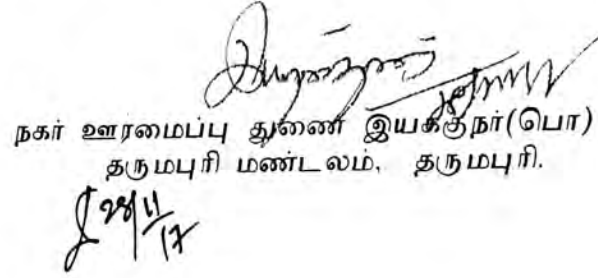 நகர் ஊரமைப்பு துணை இயக்குநர்(பொ)
தருமபுரி மண்டலம், தருமபுரி.
28/11/17